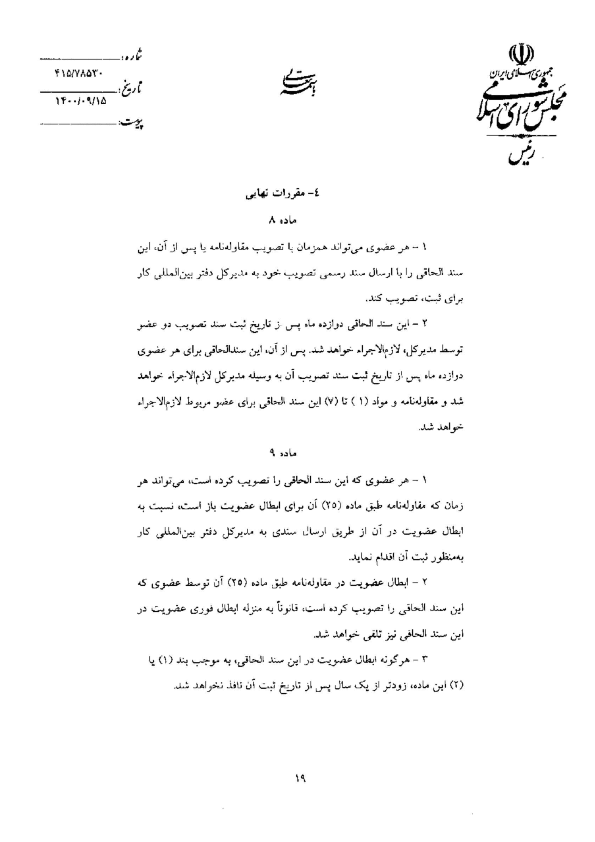 جمهوری اسلامی ایران
مجلس شورای اسلامی
رئیس
بسمه تعالی
شماره:
۴۱۵/۷۸۵۳۰
تاریخ:
۱۴۰۰/۰۹/۱۵
پیوست:
۴- مقررات نهایی
ماده ۸
۱ - هر عضوی می‌تواند همزمان با تصویب مقاوله‌نامه یا پس از آن، این
سند الحاقی را با ارسال سند رسمی تصویب خود به مدیرکل دفتر بین‌المللی کار
برای ثبت، تصویب کند.
۲ - این سند الحاقی دوازده ماه پس از تاریخ ثبت سند تصویب دو عضو
توسط مدیرکل، لازم‌الاجراء خواهد شد. پس از آن، این سندالحاقی برای هر عضوی
دوازده ماه پس از تاریخ ثبت سند تصویب آن به وسیله مدیرکل لازم‌الاجراء خواهد
شد و مقاوله‌نامه و مواد (۱) تا (۷) این سند الحاقی برای عضو مربوط لازم‌الاجراء
خواهد شد.
ماده ۹
۱ - هر عضوی که این سند الحاقی را تصویب کرده است، می‌تواند هر
زمان که مقاوله‌نامه طبق ماده (۲۵) آن برای ابطال عضویت باز است، نسبت به
ابطال عضویت در آن از طریق ارسال سندی به مدیرکل دفتر بین‌المللی کار
به‌منظور ثبت آن اقدام نماید.
۲ - ابطال عضویت در مقاوله‌نامه طبق ماده (۲۵) آن توسط عضوی که
این سند الحاقی را تصویب کرده است، قانوناً به منزله ابطال فوری عضویت در
این سند الحاقی نیز تلقی خواهد شد.
۳ - هرگونه ابطال عضویت در این سند الحاقی، به موجب بند (۱) یا
(۲) این ماده، زودتر از یک سال پس از تاریخ ثبت آن نافذ نخواهد شد.
۱۹